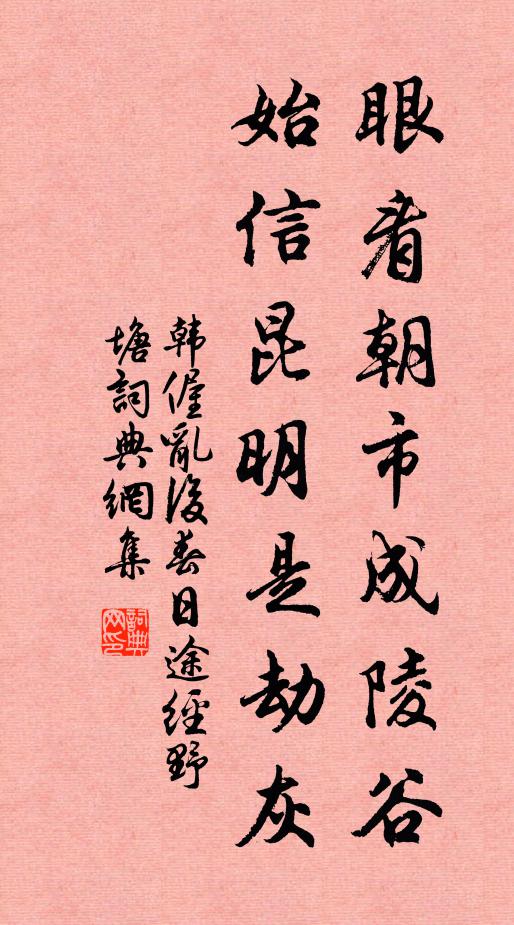 眼看朝市成陵谷
始信昆明是劫灰
韩偓亂後春日途經野
塘詞典網集
詞典
网印